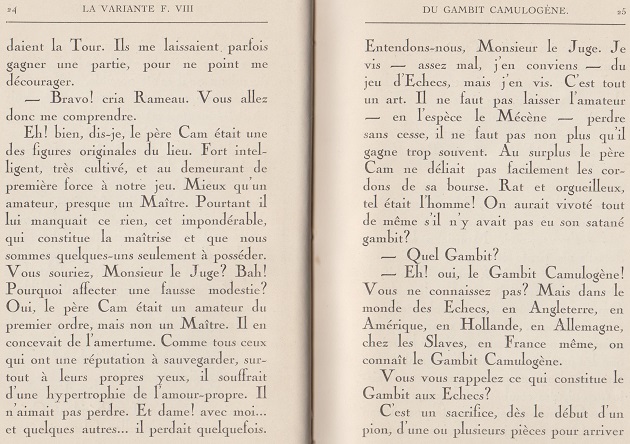 24
LA VARIANTE F. VIII
daient la Tour. Ils me laissaient parfois
gagner une partie, pour ne point me
décourager.
— Bravo! cria Rameau. Vous allez
donc me comprendre.
Eh! bien, dis-je, le père Cam était une
des figures originales du lieu. Fort intel-
ligent, très cultivé, et au demeurant de
première force à notre jeu. Mieux qu'un
amateur, presque un Maître. Pourtant il
lui manquait ce rien, cet impondérable,
qui constitue la maîtrise et que nous
sommes quelques-uns seulement à posséder.
Vous souriez, Monsieur le Juge? Bah!
Pourquoi affecter une fausse modestie?
Oui, le père Cam était un amateur du
premier ordre, mais non un Maître. Il en
concevait de l'amertume. Comme tous ceux
qui ont une réputation à sauvegarder, sur-
tout à leurs propres yeux, il souffrait
d'une hypertrophie de l'amour-propre. Il
n'aimait pas perdre. Et dame! avec moi...
et quelques autres... il perdait quelquefois.
DU GAMBIT CAMULOGÈNE.
25
Entendons-nous, Monsieur le Juge. Je
vis — assez mal, j'en conviens — du
jeu d'Echecs, mais j'en vis. C'est tout
un art. Il ne faut pas laisser l'amateur
— en l'espèce le Mécène — perdre
sans cesse, il ne faut pas non plus qu'il
gagne trop souvent. Au surplus le père
Cam ne déliait pas facilement les cor-
dons de sa bourse. Rat et orgueilleux,
tel était l'homme! On aurait vivoté tout
de même s'il n'y avait pas eu son satané
gambit?
— Quel Gambit?
— Eh! oui, le Gambit Camulogène!
Vous ne connaissez pas? Mais dans le
monde des Echecs, en Angleterre, en
Amérique, en Hollande, en Allemagne,
chez les Slaves, en France même, on
connaît le Gambit Camulogène.
Vous vous rappelez ce qui constitue le
Gambit aux Echecs?
C'est un sacrifice, dès le début d'un
pion, d'une ou plusieurs pièces pour arriver